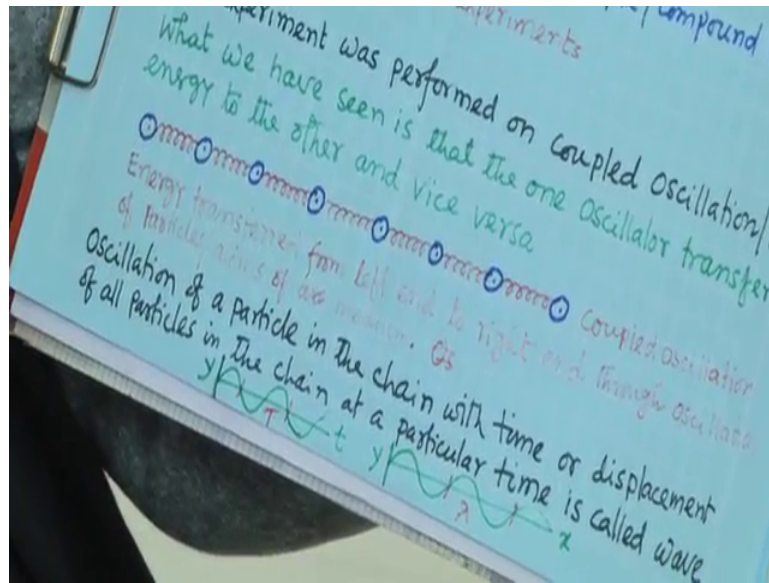 compound
experiments
experiment was performed on coupled oscillation/
What we have seen is that the one oscillator transfer
energy to the other and vice versa
Coupled oscillation
Energy transferred from left end to right end through
of particles of medium.
Oscillation of a particle in the chain with time or displacement
of all particles in the chain at a particular time is called wave
y T t
y λ x